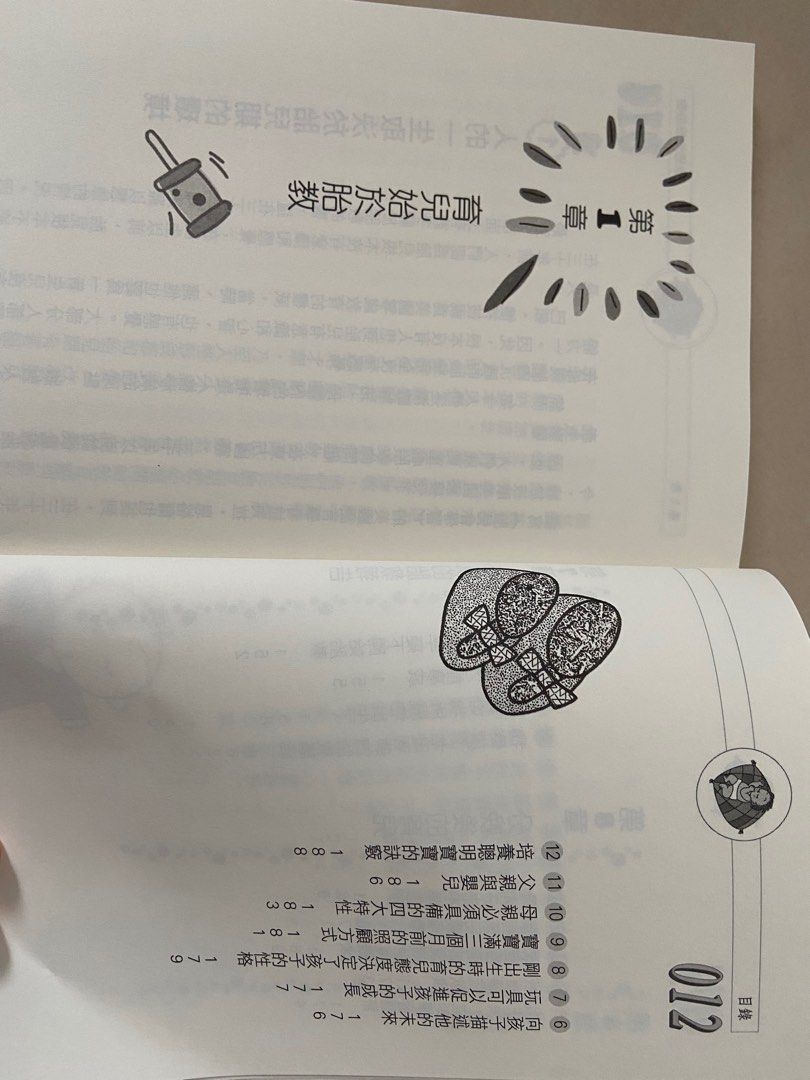 目錄
012
6 向孩子描述他的未來 176
7 玩具可以促進孩子的成長 177
8 剛出生時的育兒態度決定了孩子的性格 179
9 寶寶滿三個月前的照顧方式 181
10 母親必須具備的四大特性 183
11 父親與嬰兒 186
12 培養聰明寶寶的訣竅 188
第1章
育兒始於胎教